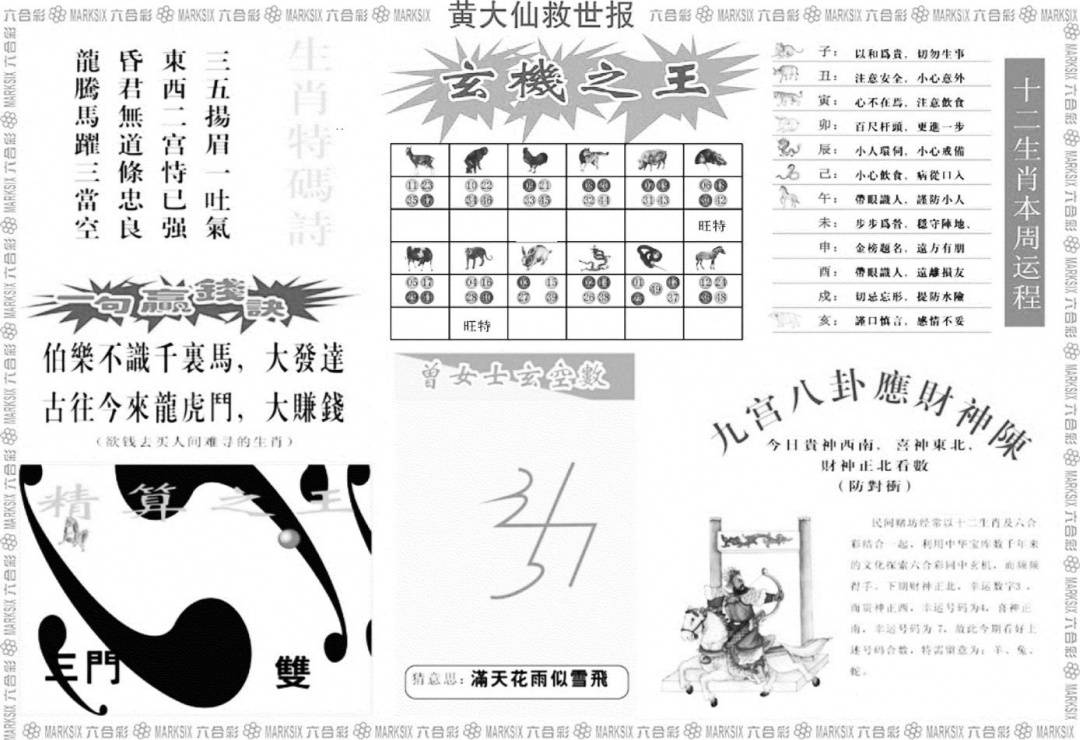 MARKSIX 六合彩
黄大仙救世报
生肖特碼詩
三五揚眉一吐氣
東西二宮恃已强
昏君無道條忠良
龍騰馬躍三當空
玄機之王
旺特
旺特
十二生肖本周运程
子： 以和爲貴，切勿生事
丑： 注意安全，小心意外
寅： 心不在焉，注意飲食
卯： 百尺杆頭，更進一步
辰： 小人環伺，小心戒備
己： 小心飲食，病從口入
午： 帶眼識人，謹防小人
未： 步步爲營，穩守陣地、
申： 金榜題名，遠方有朋
酉： 帶眼識人，遠離損友
戍： 切忌忘形，提防水險
亥： 謹口慎言，感情不妥
一句贏錢訣
伯樂不識千裏馬，大發達
古往今來龍虎鬥，大賺錢
（欲钱去买人间难寻的生肖）
精算之王
三門
雙
曾女士玄空數
猜意思：滿天花雨似雪飛
九宫八卦應財神陳
今日貴神西南，喜神東北，
財神正北看數
（防對衝）
民间赌坊经常以十二生肖及六合
彩结合一起，利用中华宝库数千年来
的文化探索六合彩同中玄机，而频频
得手。下期财神正北，幸运数字3，
而贵神正西，幸运号码为4，喜神正
南，幸运号码为 7，故此今期看好上
述号码合数，特需留意为：羊、兔、
蛇。